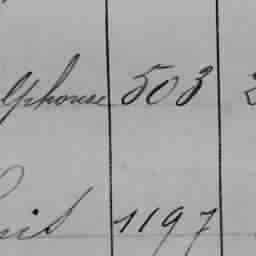 lphonse 503 2
uis 1197